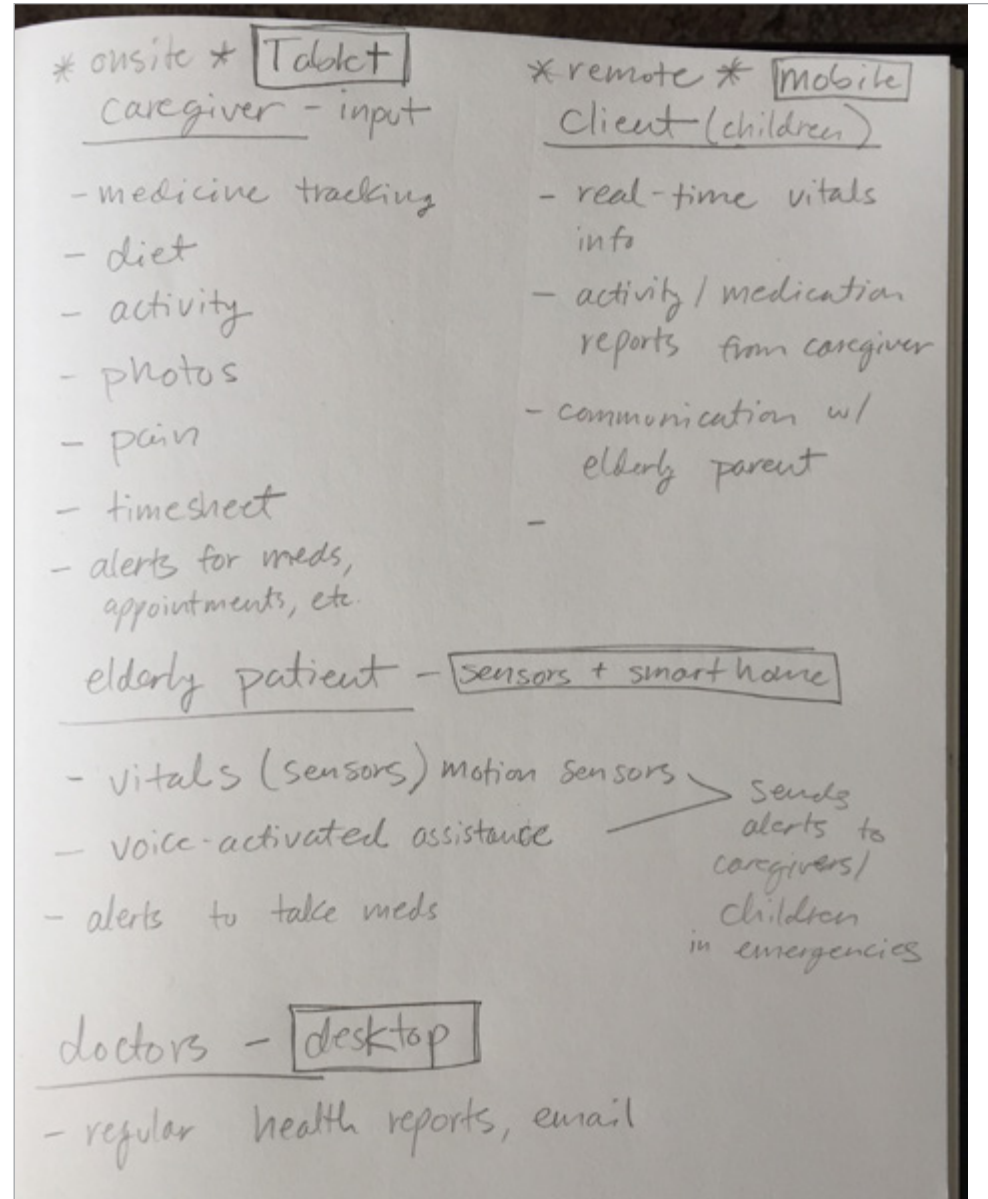 * onsite * Tablet
caregiver - input
- medicine tracking
- diet
- activity
- photos
- pain
- timesheet
- alerts for meds,
appointments, etc.
* remote * mobile
Client (children)
- real-time vitals
info
- activity / medication
reports from caregiver
- communication w/
elderly parent
-
elderly patient - sensors + smart home
- vitals (sensors) motion sensors
- voice-activated assistance
- alerts to take meds
sends
alerts to
caregivers/
children
in emergencies
doctors - desktop
- regular health reports, email